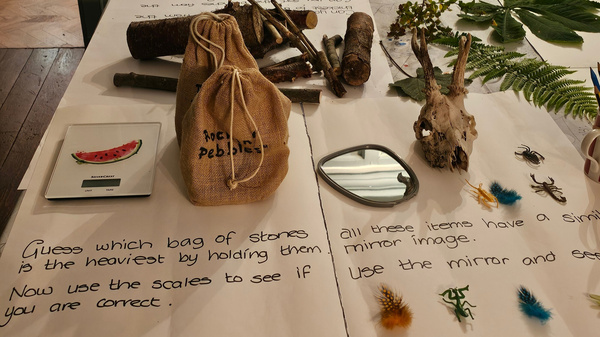 Rocks /
Pebbles
Guess which bag of stones
is the heaviest by holding them.
Now use the scales to see if
you are correct.
all these items have a
mirror image.
Use the mirror and see